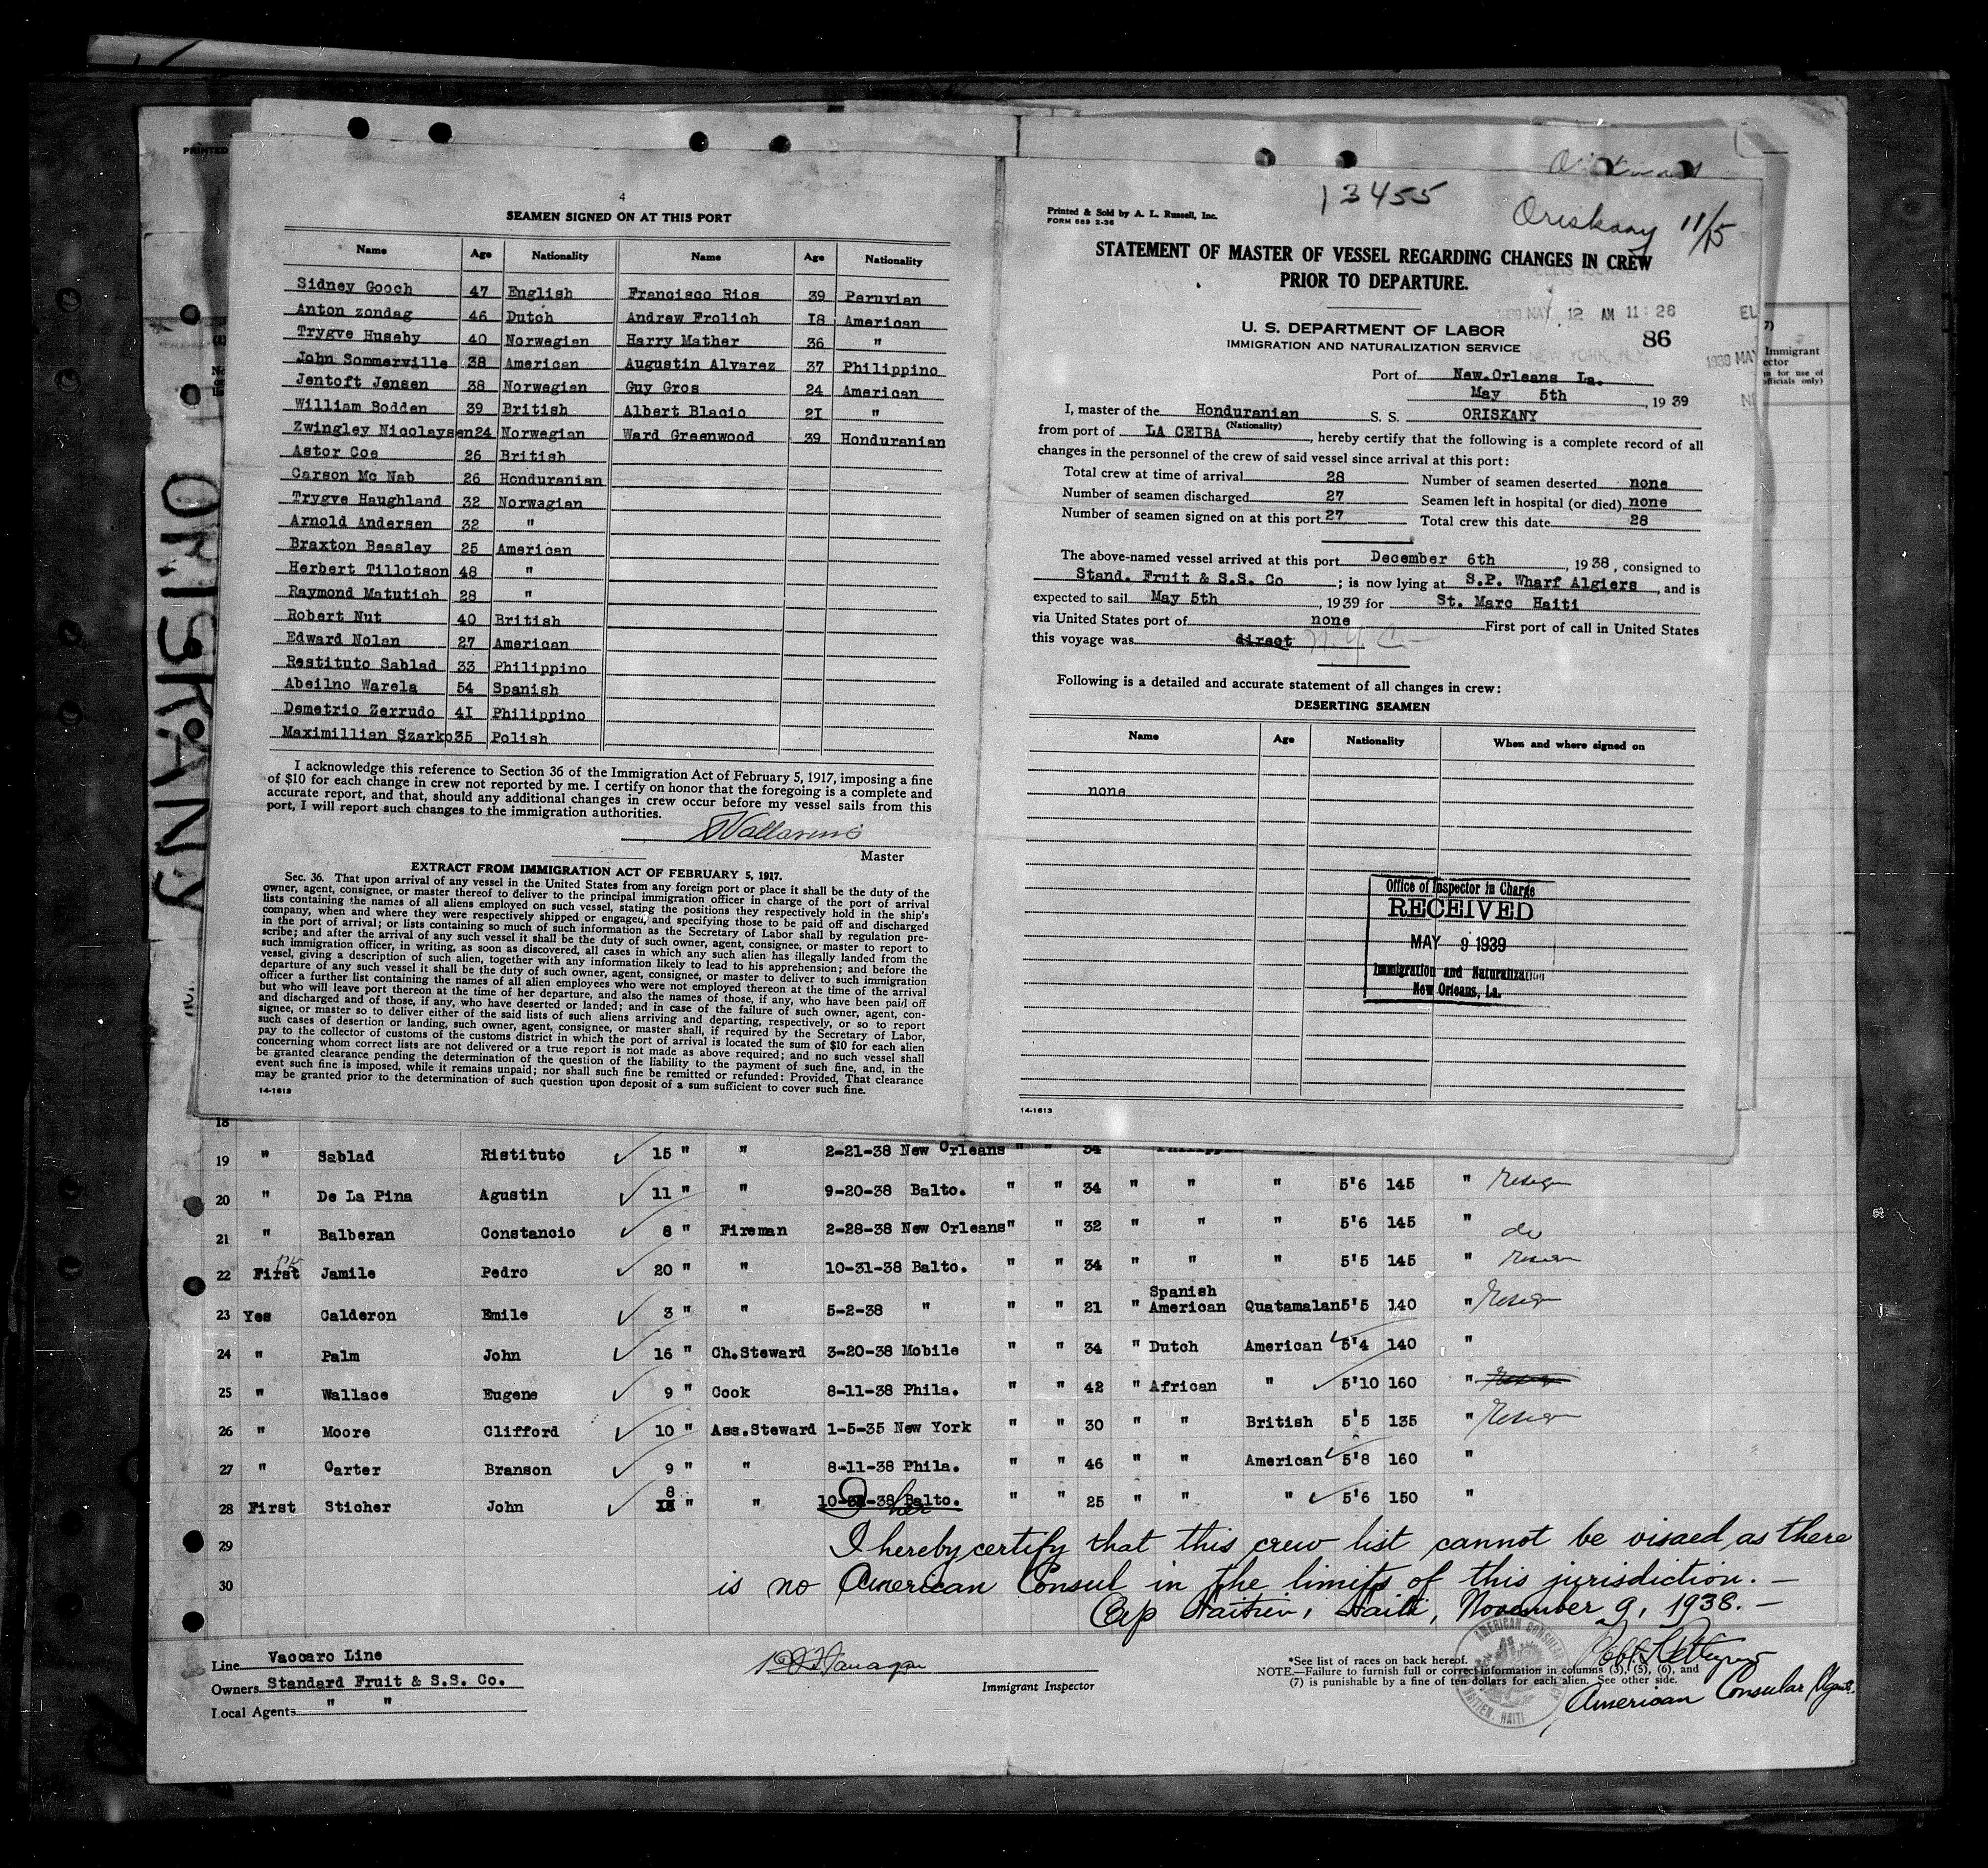 PRINTED
4
SEAMEN SIGNED ON AT THIS PORT
Name Age Nationality Name Age Nationality
Sidney Gooch 47 English Francisco Rios 39 Peruvian
Anton zondag 46 Dutch Andrew Frolich 18 American
Trygve Huseby 40 Norwegian Harry Mather 36 "
John Sommerville 38 American Augustin Alvarez 37 Philippino
Jentoft Jensen 38 Norwegian Guy Gros 24 American
William Bodden 39 British Albert Blacio 21 "
Zwingley Nicolaysen 24 Norwegian Ward Greenwood 39 Honduranian
Astor Coe 26 British
Carson Mc Nab 26 Honduranian
Trygve Haughland 32 Norwagian
Arnold Andersen 32 "
Braxton Beasley 25 American
Herbert Tillotson 48 "
Raymond Matutich 28 "
Robert Nut 40 British
Edward Nolan 27 American
Restituto Sablad 33 Philippino
Abeilno Warela 54 Spanish
Demetrio Zerrudo 41 Philippino
Maximillian Szarko 35 Polish
I acknowledge this reference to Section 36 of the Immigration Act of February 5, 1917, imposing a fine
of $10 for each change in crew not reported by me. I certify on honor that the foregoing is a complete and
accurate report, and that, should any additional changes in crew occur before my vessel sails from this
port, I will report such changes to the immigration authorities.
Master
EXTRACT FROM IMMIGRATION ACT OF FEBRUARY 5, 1917.
Sec. 36. That upon arrival of any vessel in the United States from any foreign port or place it shall be the duty of the
owner, agent, consignee, or master thereof to deliver to the principal immigration officer in charge of the port of arrival
lists containing the names of all aliens employed on such vessel, stating the positions they respectively hold in the ship's
company, when and where they were respectively shipped or engaged, and specifying those to be paid off and discharged
in the port of arrival; or lists containing so much of such information as the Secretary of Labor shall by regulation pre-
scribe; and after the arrival of any such vessel it shall be the duty of such owner, agent, consignee, or master to report to
such immigration officer, in writing, as soon as discovered, all cases in which any such alien has illegally landed from the
vessel, giving a description of such alien, together with any information likely to lead to his apprehension; and before the
departure of any such vessel it shall be the duty of such owner, agent, consignee, or master to deliver to such immigration
officer a further list containing the names of all alien employees who were not employed thereon at the time of the arrival
but who will leave port thereon at the time of her departure, and also the names of those, if any, who have been paid off
and discharged and of those, if any, who have deserted or landed; and in case of the failure of such owner, agent, con-
signee, or master so to deliver either of the said lists of such aliens arriving and departing, respectively, or so to report
such cases of desertion or landing, such owner, agent, consignee, or master shall, if required by the Secretary of Labor,
pay to the collector of customs of the customs district in which the port of arrival is located the sum of $10 for each alien
concerning whom correct lists are not delivered or a true report is not made as above required; and no such vessel shall
be granted clearance pending the determination of the question of the liability to the payment of such fine, and, in the
event such fine is imposed, while it remains unpaid; nor shall such fine be remitted or refunded: Provided, That clearance
may be granted prior to the determination of such question upon deposit of a sum sufficient to cover such fine.
14-1613
ORISKANY
13455
Oriskany 11/15
Printed & Sold by A. L. Russell, Inc.
FORM 689 2-36
STATEMENT OF MASTER OF VESSEL REGARDING CHANGES IN CREW
PRIOR TO DEPARTURE.
MAY 12 AM 11:26
U. S. DEPARTMENT OF LABOR
IMMIGRATION AND NATURALIZATION SERVICE
86
NEW YORK, N.Y.
1939 MAY
Immigrant
for use of
officials only)
Port of New.Orleans La.
May 5th, 1939
I, master of the Honduranian S. S. ORISKANY
(Nationality)
from port of LA CEIBA, hereby certify that the following is a complete record of all
changes in the personnel of the crew of said vessel since arrival at this port:
Total crew at time of arrival 28 Number of seamen deserted none
Number of seamen discharged 27 Seamen left in hospital (or died) none
Number of seamen signed on at this port 27 Total crew this date 28
The above-named vessel arrived at this port December 6th, 1938, consigned to
Stand. Fruit & S.S. Co; is now lying at S.P. Wharf Algiers, and is
expected to sail May 5th, 1939 for St. Marc Haiti
via United States port of none First port of call in United States
this voyage was direct N.Y.C.
Following is a detailed and accurate statement of all changes in crew:
DESERTING SEAMEN
Name Age Nationality When and where signed on
none
Office of Inspector in Charge
RECEIVED
MAY 9 1939
Immigration and Naturalization
New Orleans, La.
14-1613
18
19 " Sablad Ristituto 15 " " 2-21-38 New Orleans " " 34
20 " De La Pina Agustin 11 " " 9-20-38 Balto. " " 34 " " " 5'6 145 " Resign
21 " Balberan Constancio 8 " Fireman 2-28-38 New Orleans " " 32 " " " 5'6 145 " do
22 First Jamile Pedro 20 " " 10-31-38 Balto. " " 34 " " " 5'5 145 " Resign
23 Yes Calderon Emile 3 " " 5-2-38 " " " 21 " Spanish American Quatamalan 5'5 140 " Resign
24 " Palm John 16 " Ch.Steward 3-20-38 Mobile " " 34 " Dutch American 5'4 140 "
25 " Wallace Eugene 9 " Cook 8-11-38 Phila. " " 42 " African " 5'10 160 "
26 " Moore Clifford 10 " Ass.Steward 1-5-35 New York " " 30 " " British 5'5 135 " Resign
27 " Carter Branson 9 " " 8-11-38 Phila. " " 46 " " American 5'8 160 "
28 First Sticher John 8 " " 10-31-38 Balto. " " 25 " " " 5'6 150 "
29 I hereby certify that this crew list cannot be visaed as there
30 is no American Consul in the limits of this jurisdiction. —
Cap Haitien, Haiti, November 9, 1938. —
Line Vaccaro Line
Owners Standard Fruit & S.S. Co.
Local Agents " "
Immigrant Inspector
*See list of races on back hereof.
NOTE.—Failure to furnish full or correct information in columns (3), (5), (6), and
(7) is punishable by a fine of ten dollars for each alien. See other side.
AMERICAN CONSULAR
HAITIEN, HAITI
American Consular Agent.